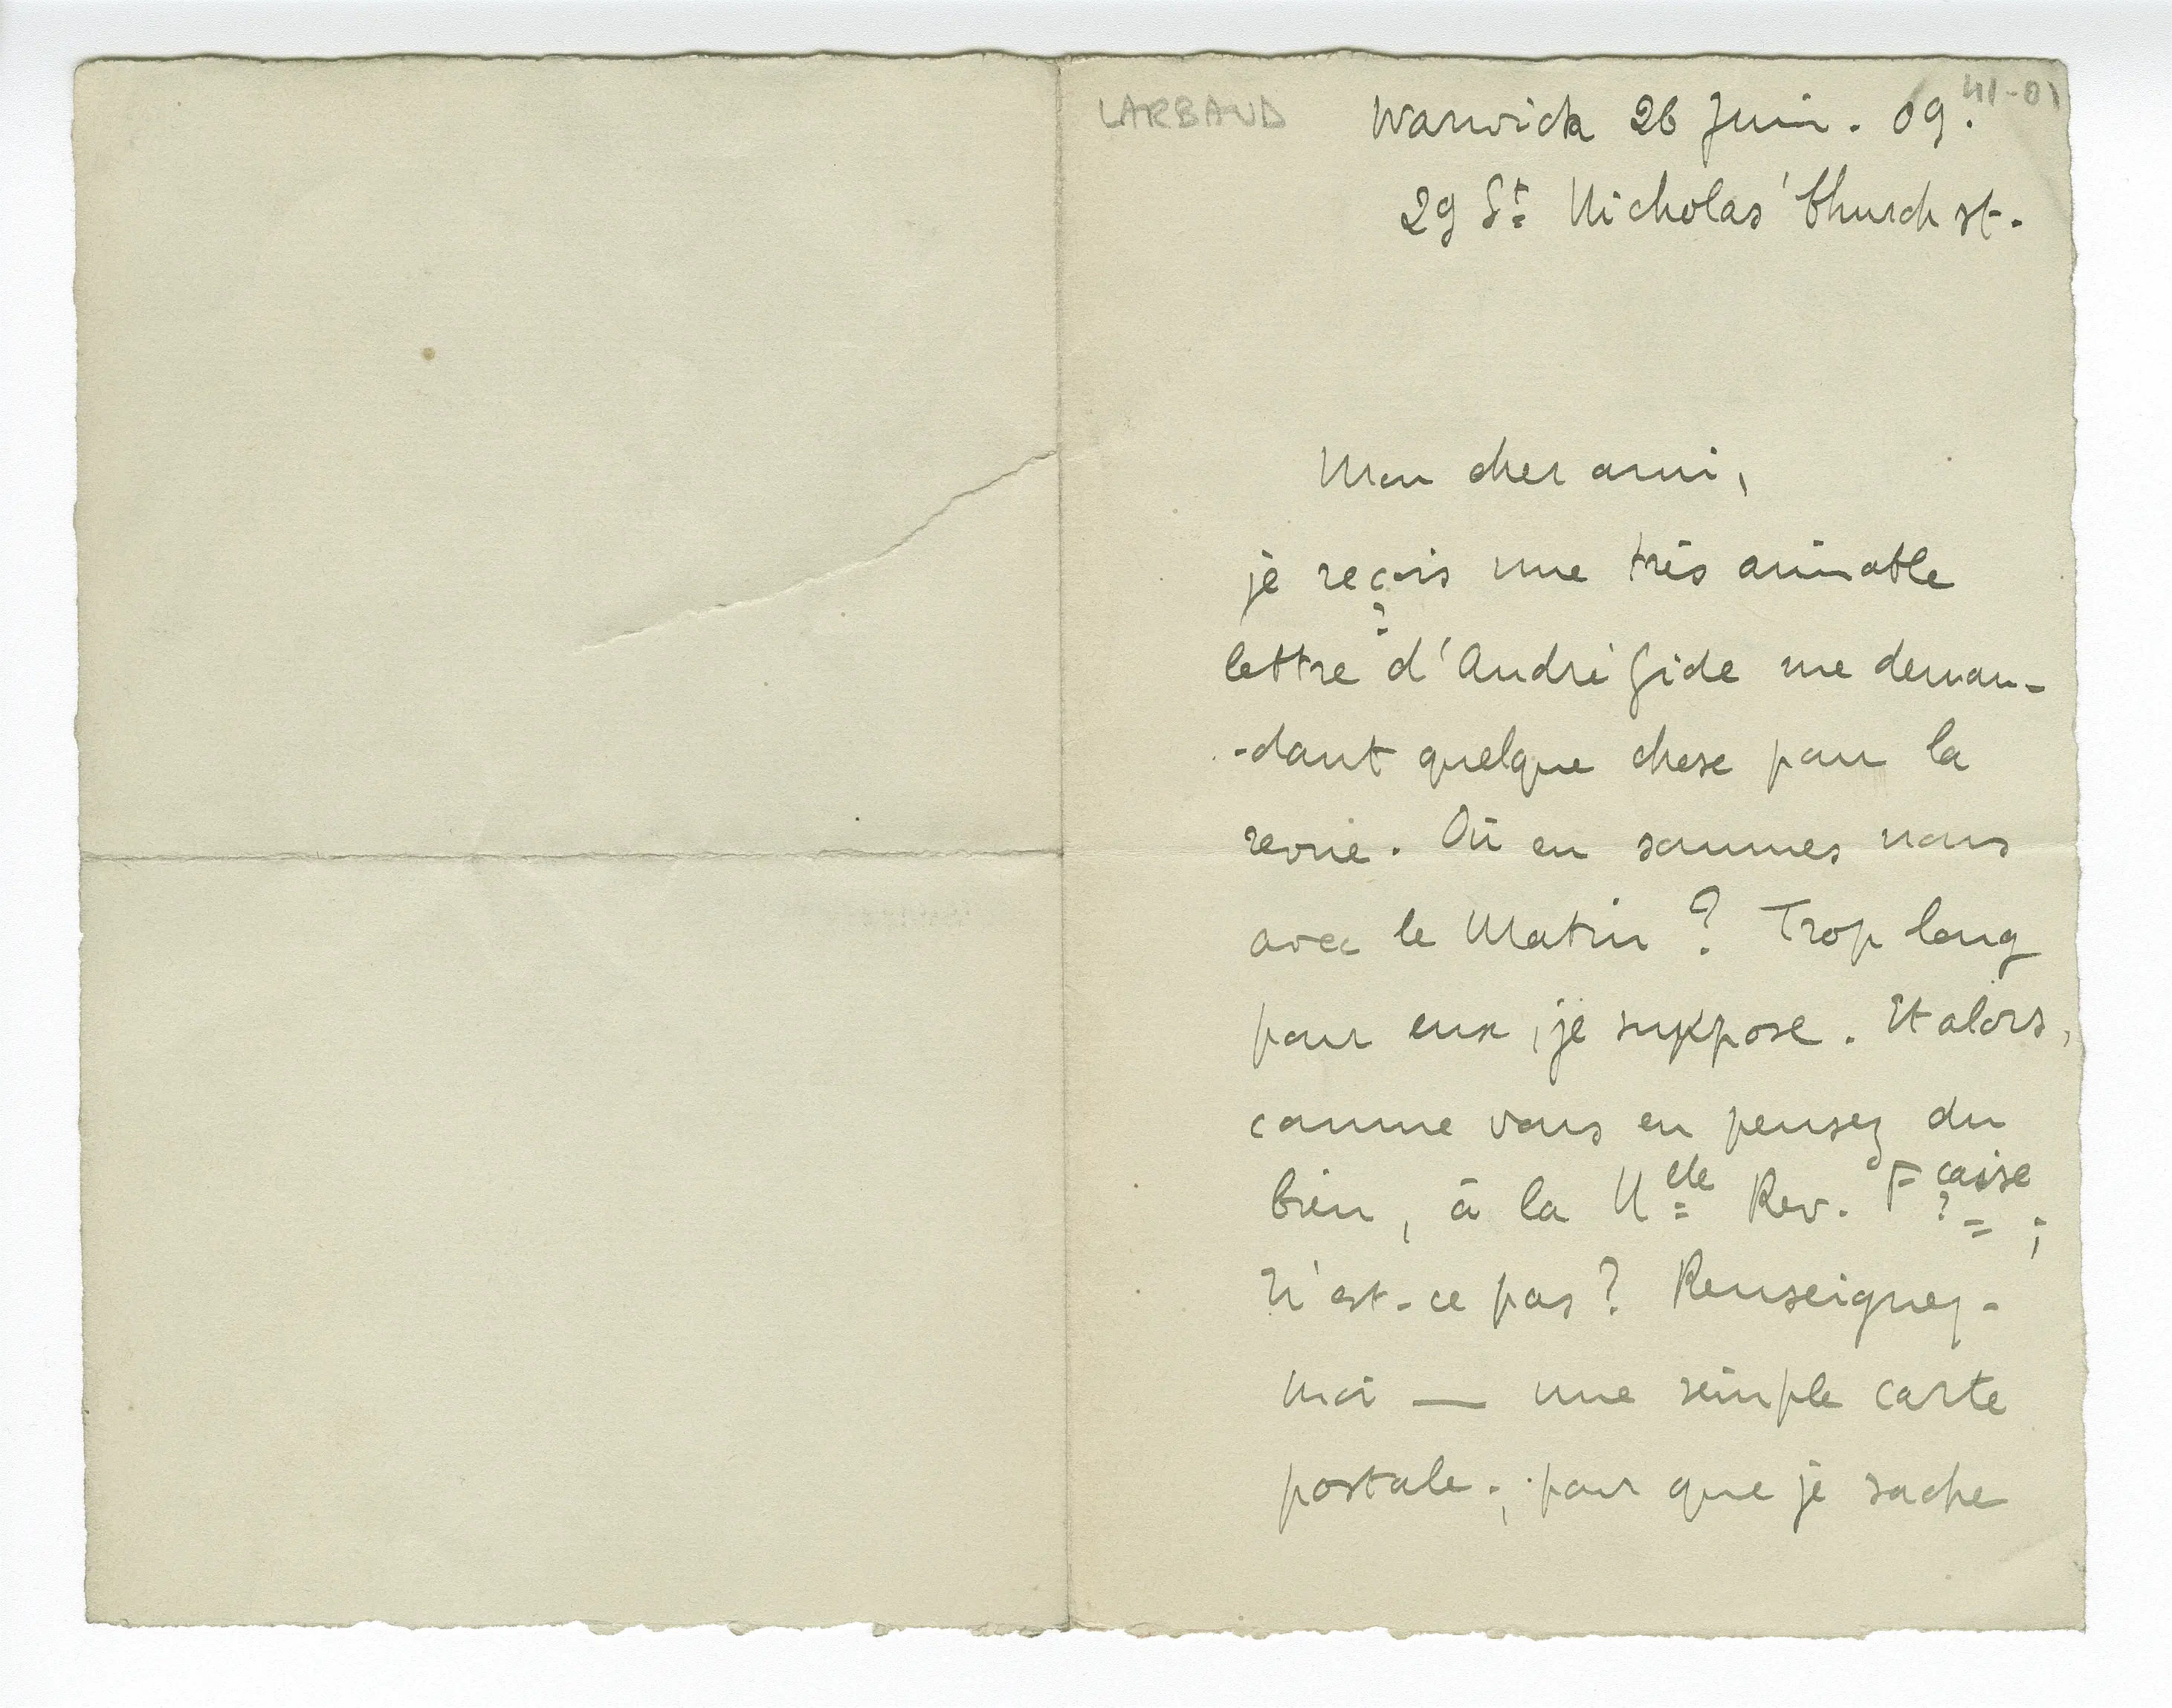 LARBAUD
41-01
Warwick 26 Juin. 09.
29 St Nicholas' Church st.
Mon cher ami,
je reçois une très aimable
lettre d'André Gide me deman-
-dant quelque chose pour la
revue. Où en sommes nous
avec le Matin ? Trop long
pour eux, je suppose. Et alors,
comme vous en pensez du
bien, à la Nelle Rev. Fçaise ;
n'est-ce pas ? Renseignez-
moi — une simple carte
postale., pour que je sache